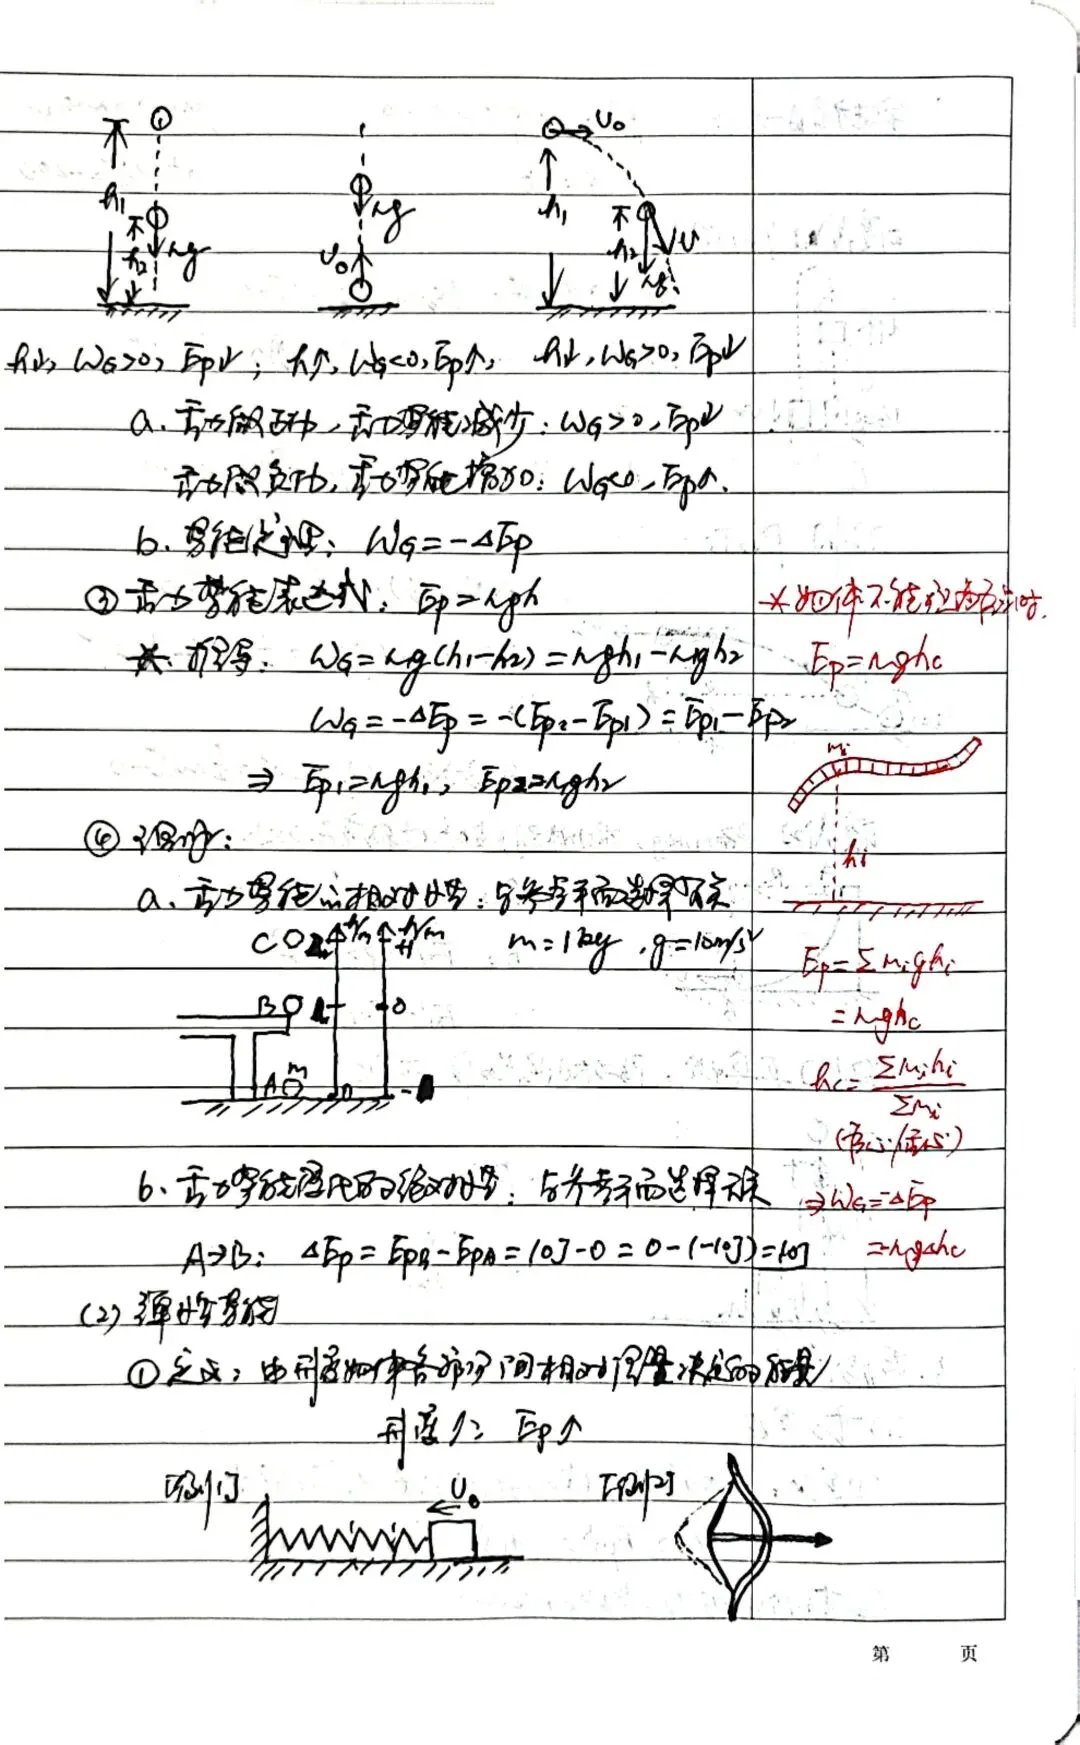 h₁ h₂ mg
mg v₀
v₀ h₁ h₂ mg v
h↓, W_G>0, Ep↓; h↑, W_G<0, Ep↑, h↓, W_G>0, Ep↓
a. 重力做正功, 重力势能减少: W_G>0, Ep↓
重力做负功, 重力势能增加: W_G<0, Ep↑.
b. 势能定理: W_G=-ΔEp
③ 重力势能表达式: Ep=mgh
* 推导: W_G=mg(h₁-h₂)=mgh₁-mgh₂
W_G=-ΔEp=-(Ep₂-Ep₁)=Ep₁-Ep₂
⇒ Ep₁=mgh₁, Ep₂=mgh₂
④ 理解:
a. 重力势能的相对性: 与参考平面选择有关
C h/m h/m m=1kg, g=10m/s²
B 0
A m 0
b. 重力势能变化的绝对性: 与参考平面选择无关
A→B: ΔEp=EpB-EpA=10J-0=0-(-10J)=10J
(2) 弹性势能
① 定义: 由形变物体各部分间相对位置决定的能量
形变↑: Ep↑
[例1] v₀ [例2]
* 物体不能视为质点时.
Ep=mghc
mi
hi
Ep=Σmighi
=mghc
hc=Σmihi/Σmi
(质心/重心)
⇒W_G=-ΔEp
=-mgΔhc
第 页